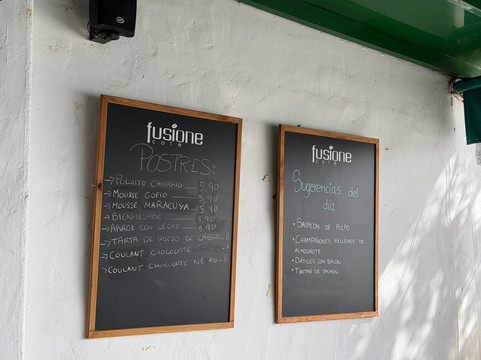 fusione
café
POSTRES:
→ POLVITO CANARIO 5,90
→ MOUSSE GOFIO 5,90
→ MOUSSE MARACUYA 5,90
→ BIENMESABE 5,90
→ ARROZ CON LECHE 5,90
→ TARTA DE QUESO DE CABRA 6
→ COULANT CHOCOLATE 6
→ COULANT CHOCOLATE 6
fusione
café
Sugerencias del
día
• SALPICÓN DE PULPO
• CHAMPIÑONES RELLENOS DE
ALMOGROTE
• DÁTILES CON BACON
• TARTAR DE SALMÓN